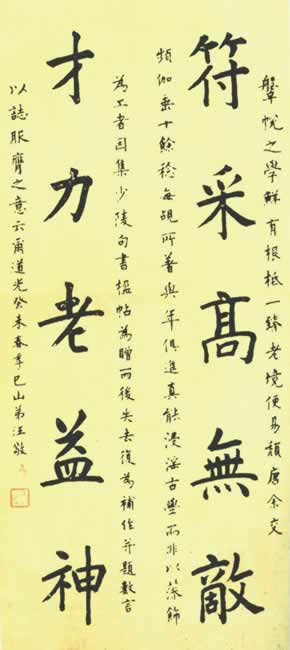 鞶帨之學鮮有根柢一臻老境便易頹唐余交
符采髙無敵
頻伽垂十餘稔每覩所著與年俱進真能浸淫古學而非以藻飾
為工者因集少陵句書楹帖為贈而後失去復為補作并題數言
才力老益神
以誌服膺之意云爾道光癸未春季巴山弟汪敬